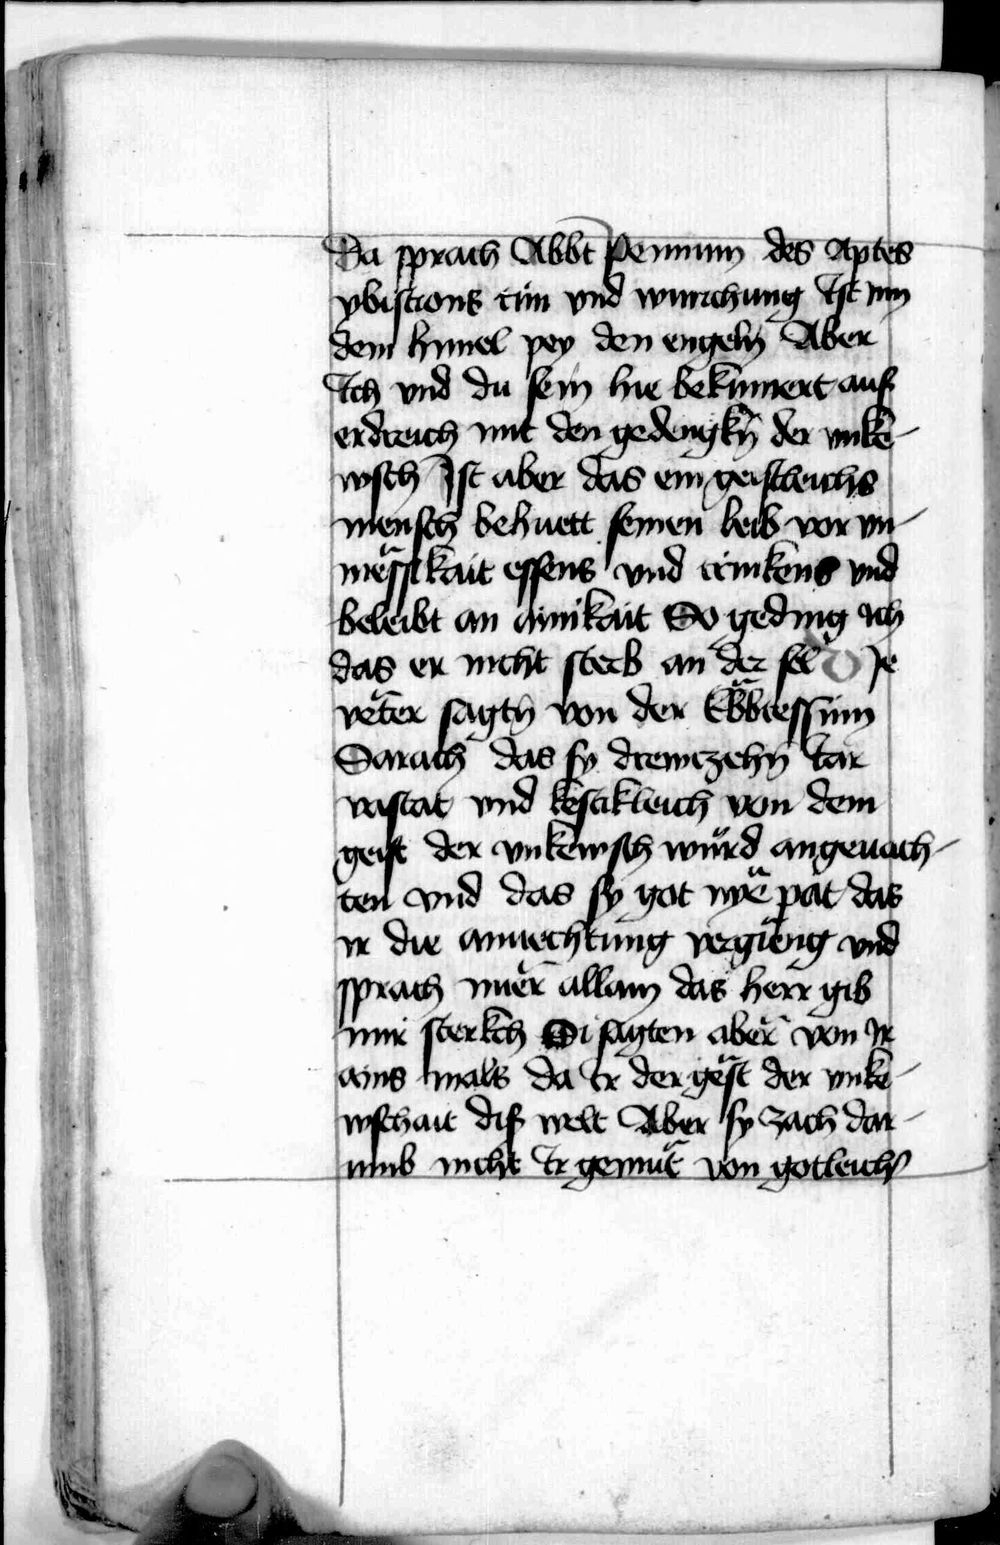 Da sprach Abbt Pemmum des aptes
ybistions tün vnd wurchung Ist im
dem himel pey den engeln Aber
Ich vnd du sein hie bekümert auf
erdreich mit den gedengkn der vnke-
wsch Ist aber das ein geistleichs
mensch behuett seinen leib vor vn-
mässikait essens vnd trinkens vnd
beleibt an ainikait So geding ich
das er nicht sterb an der sel Die
väter sagtn von der Äbbtessinn
Sarach das sy drewczehn Iar
vastat vnd kestikleich von dem
geist der vnkewsch würd angeuach-
ten vnd das sy got nye pat das
ir die anuechtung vergieng vnd
sprach nuer allain das herr gib
mir sterkch Si sagten aber von Ir
ains mals da Ir der geist der vnke-
wschait dis welt Aber sy zach dar-
umb nicht Ir gemüt von gotleichs